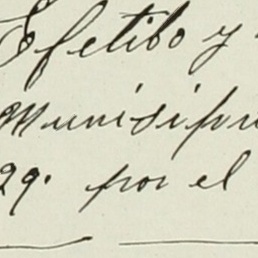 Efetibo y
Munisipu
29. por el